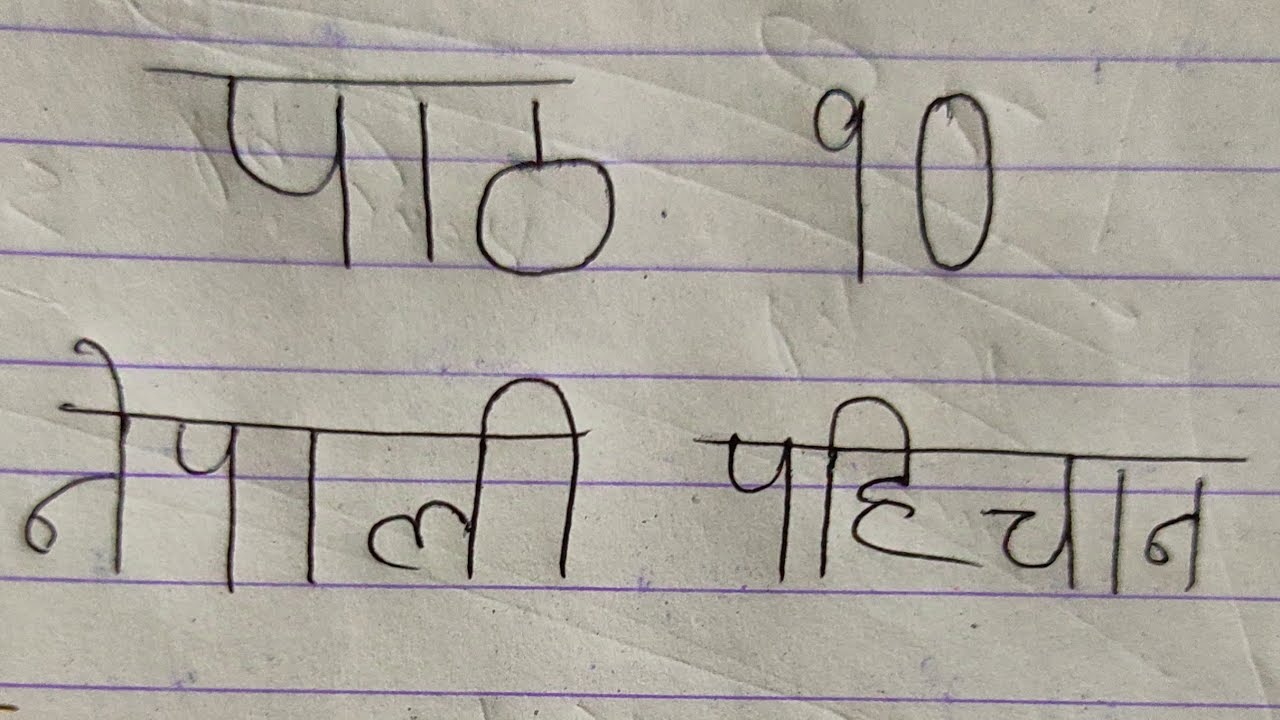 पाठ १०
नेपाली पहिचान